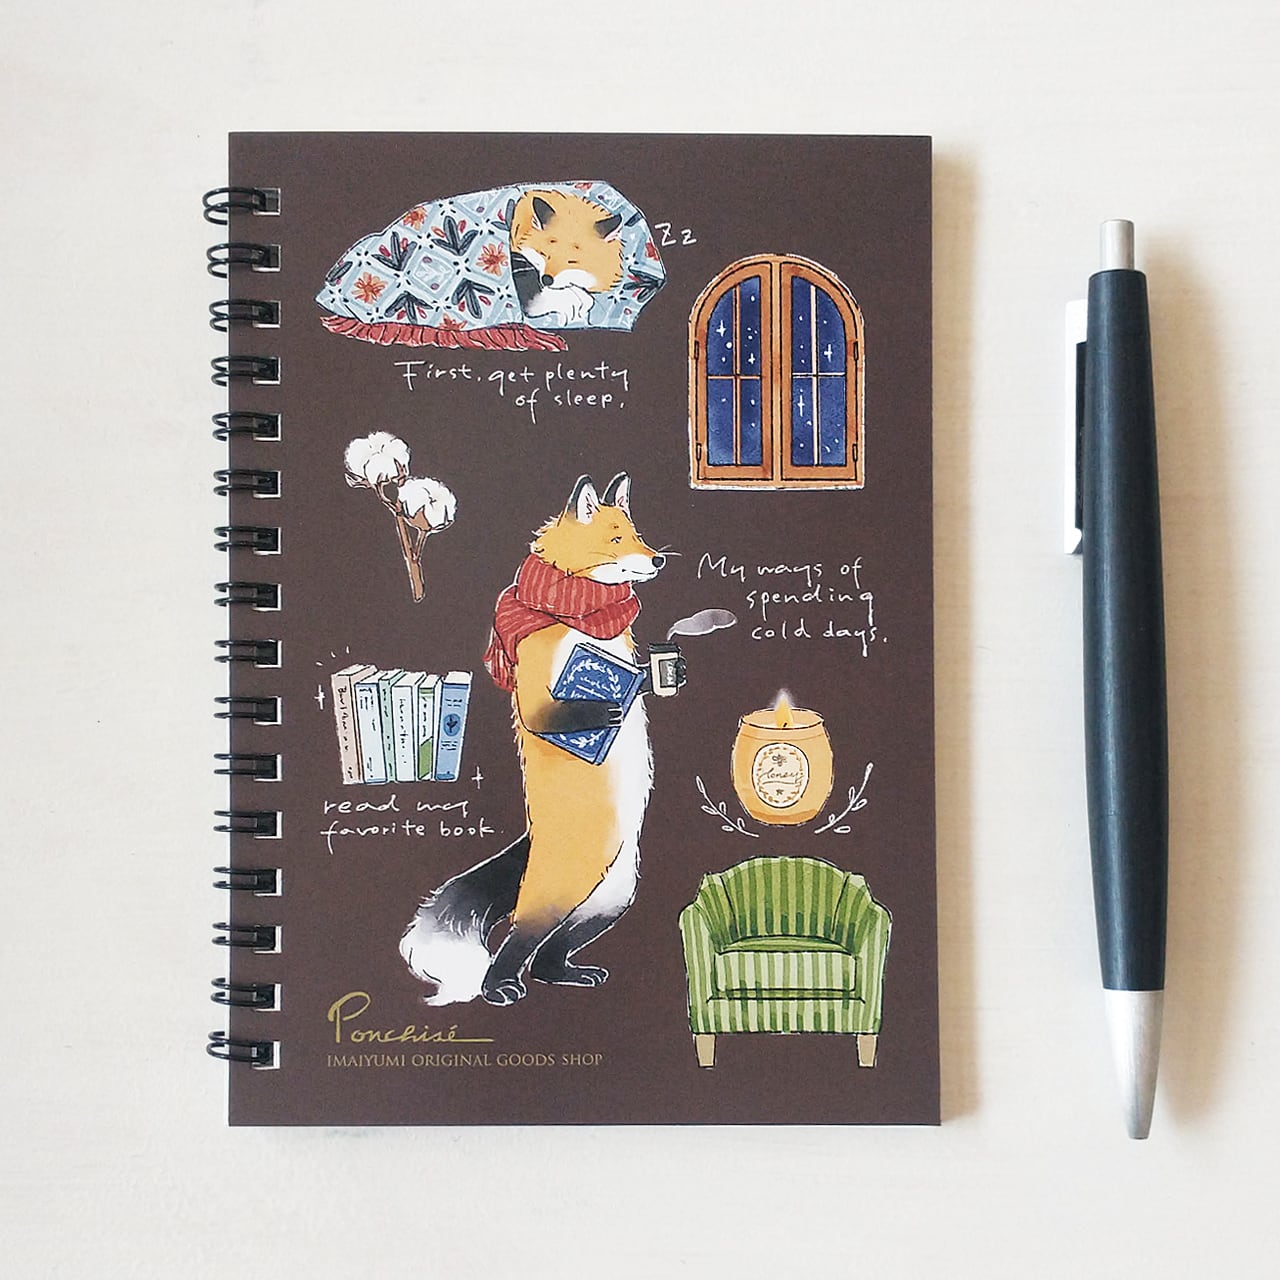 Zz
First, get plenty
of sleep.
My ways of
spending
cold days.
read my
favorite book.
Honey
Ponchisé
IMAIYUMI ORIGINAL GOODS SHOP